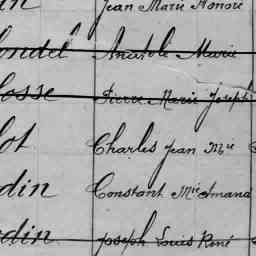 in Jean Marie Honoré
ondel Anatole Marie
osse Pierre Marie Joseph
lot Charles Jean Mie
din Constant Mie Amand
din Joseph Louis René